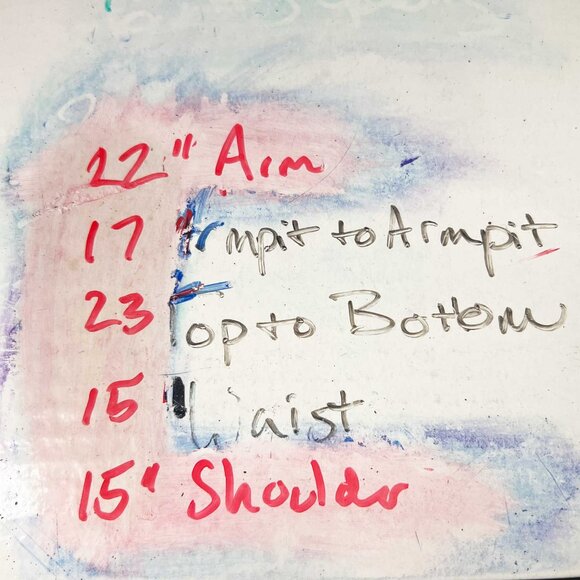 22" Arm
17 Armpit to Armpit
23 Top to Bottom
15 Waist
15" Shoulder